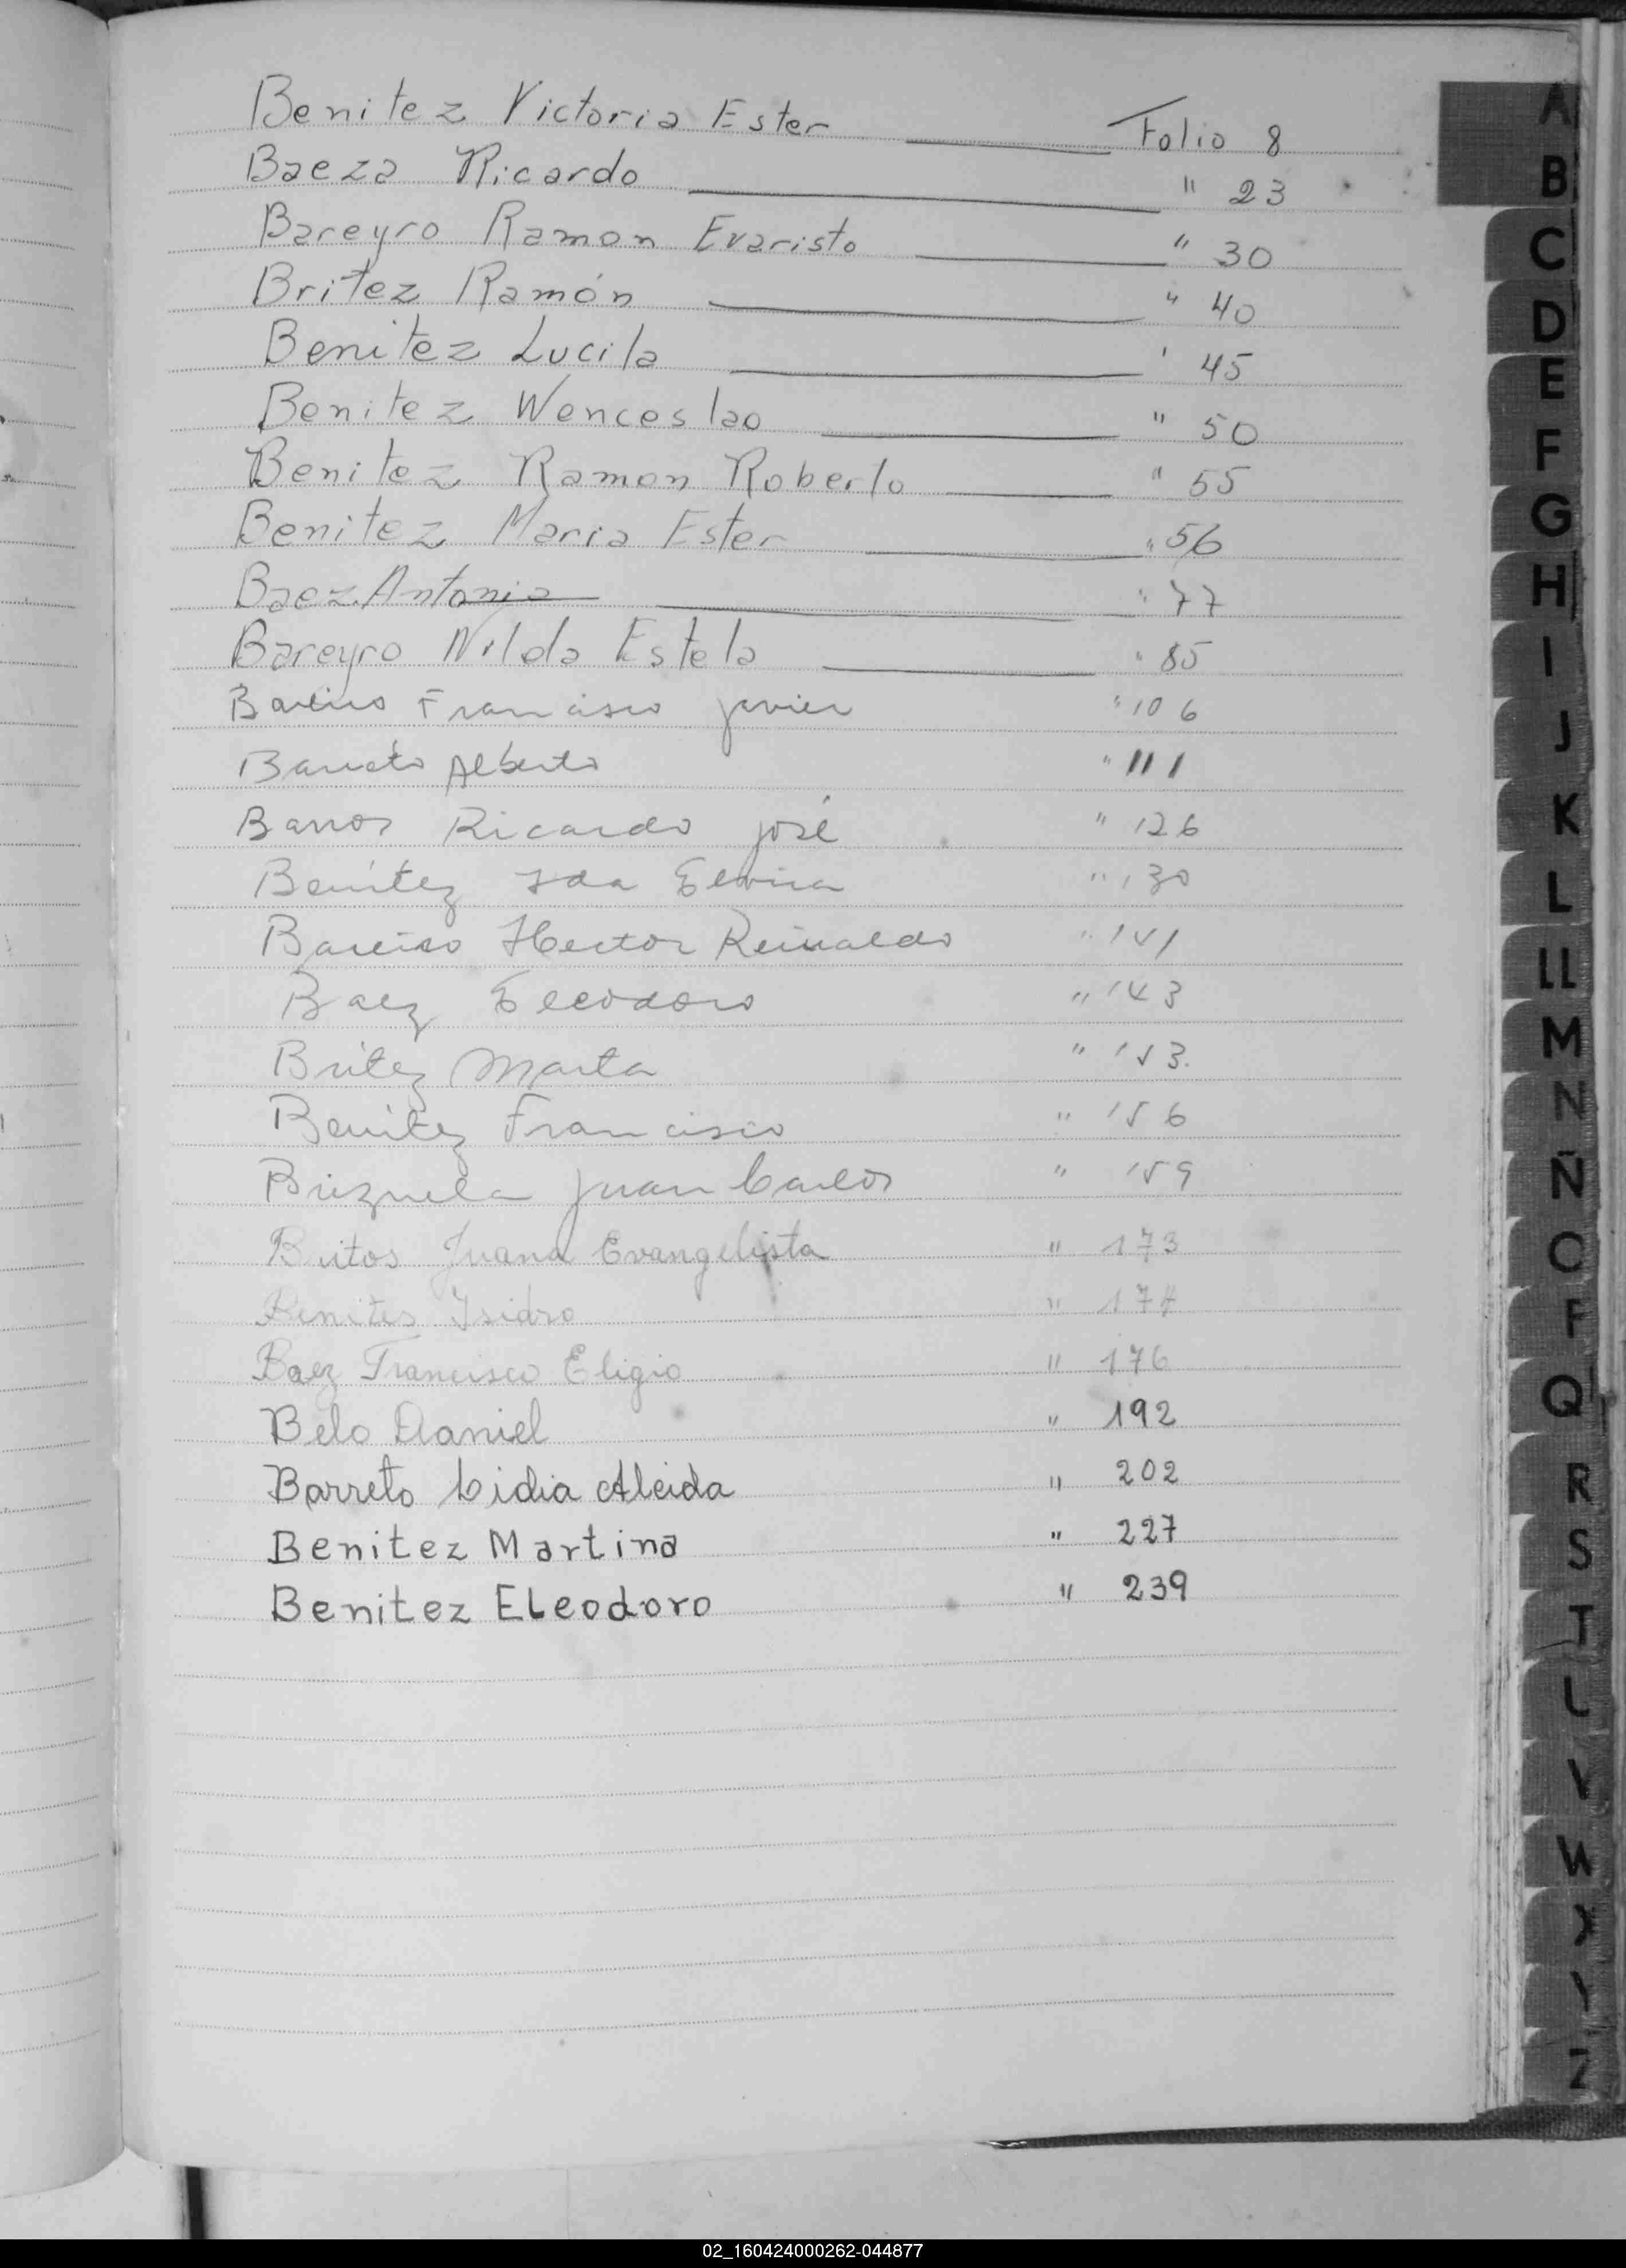 Benitez Victoria Ester Folio 8
Baeza Ricardo " 23
Bareyro Ramon Evaristo " 30
Britez Ramón " 40
Benitez Lucila ' 45
Benitez Wenceslao " 50
Benitez Ramon Roberto " 55
Benitez Maria Ester " 56
Baez Antonia " 77
Bareyro Nilda Estela " 85
Bareiro Francisco Javier " 106
Barreto Alberto " 111
Barros Ricardo José " 126
Benítez Ida Elvira " 130
Bareiro Hector Reinaldo " 141
Baez Eleodoro " 143
Britez Marta " 153
Benitez Francisco " 156
Brizuela Juan Carlos " 159
Britos Juana Evangelista " 173
Benites Isidro " 174
Baez Francisco Eligio " 176
Belo Daniel " 192
Barreto Lidia Aleida " 202
Benitez Martina " 227
Benitez Eleodoro " 239
A
B
C
D
E
F
G
H
I
J
K
L
LL
M
N
Ñ
O
P
Q
R
S
T
U
V
W
X
Y
Z
02_160424000262-044877